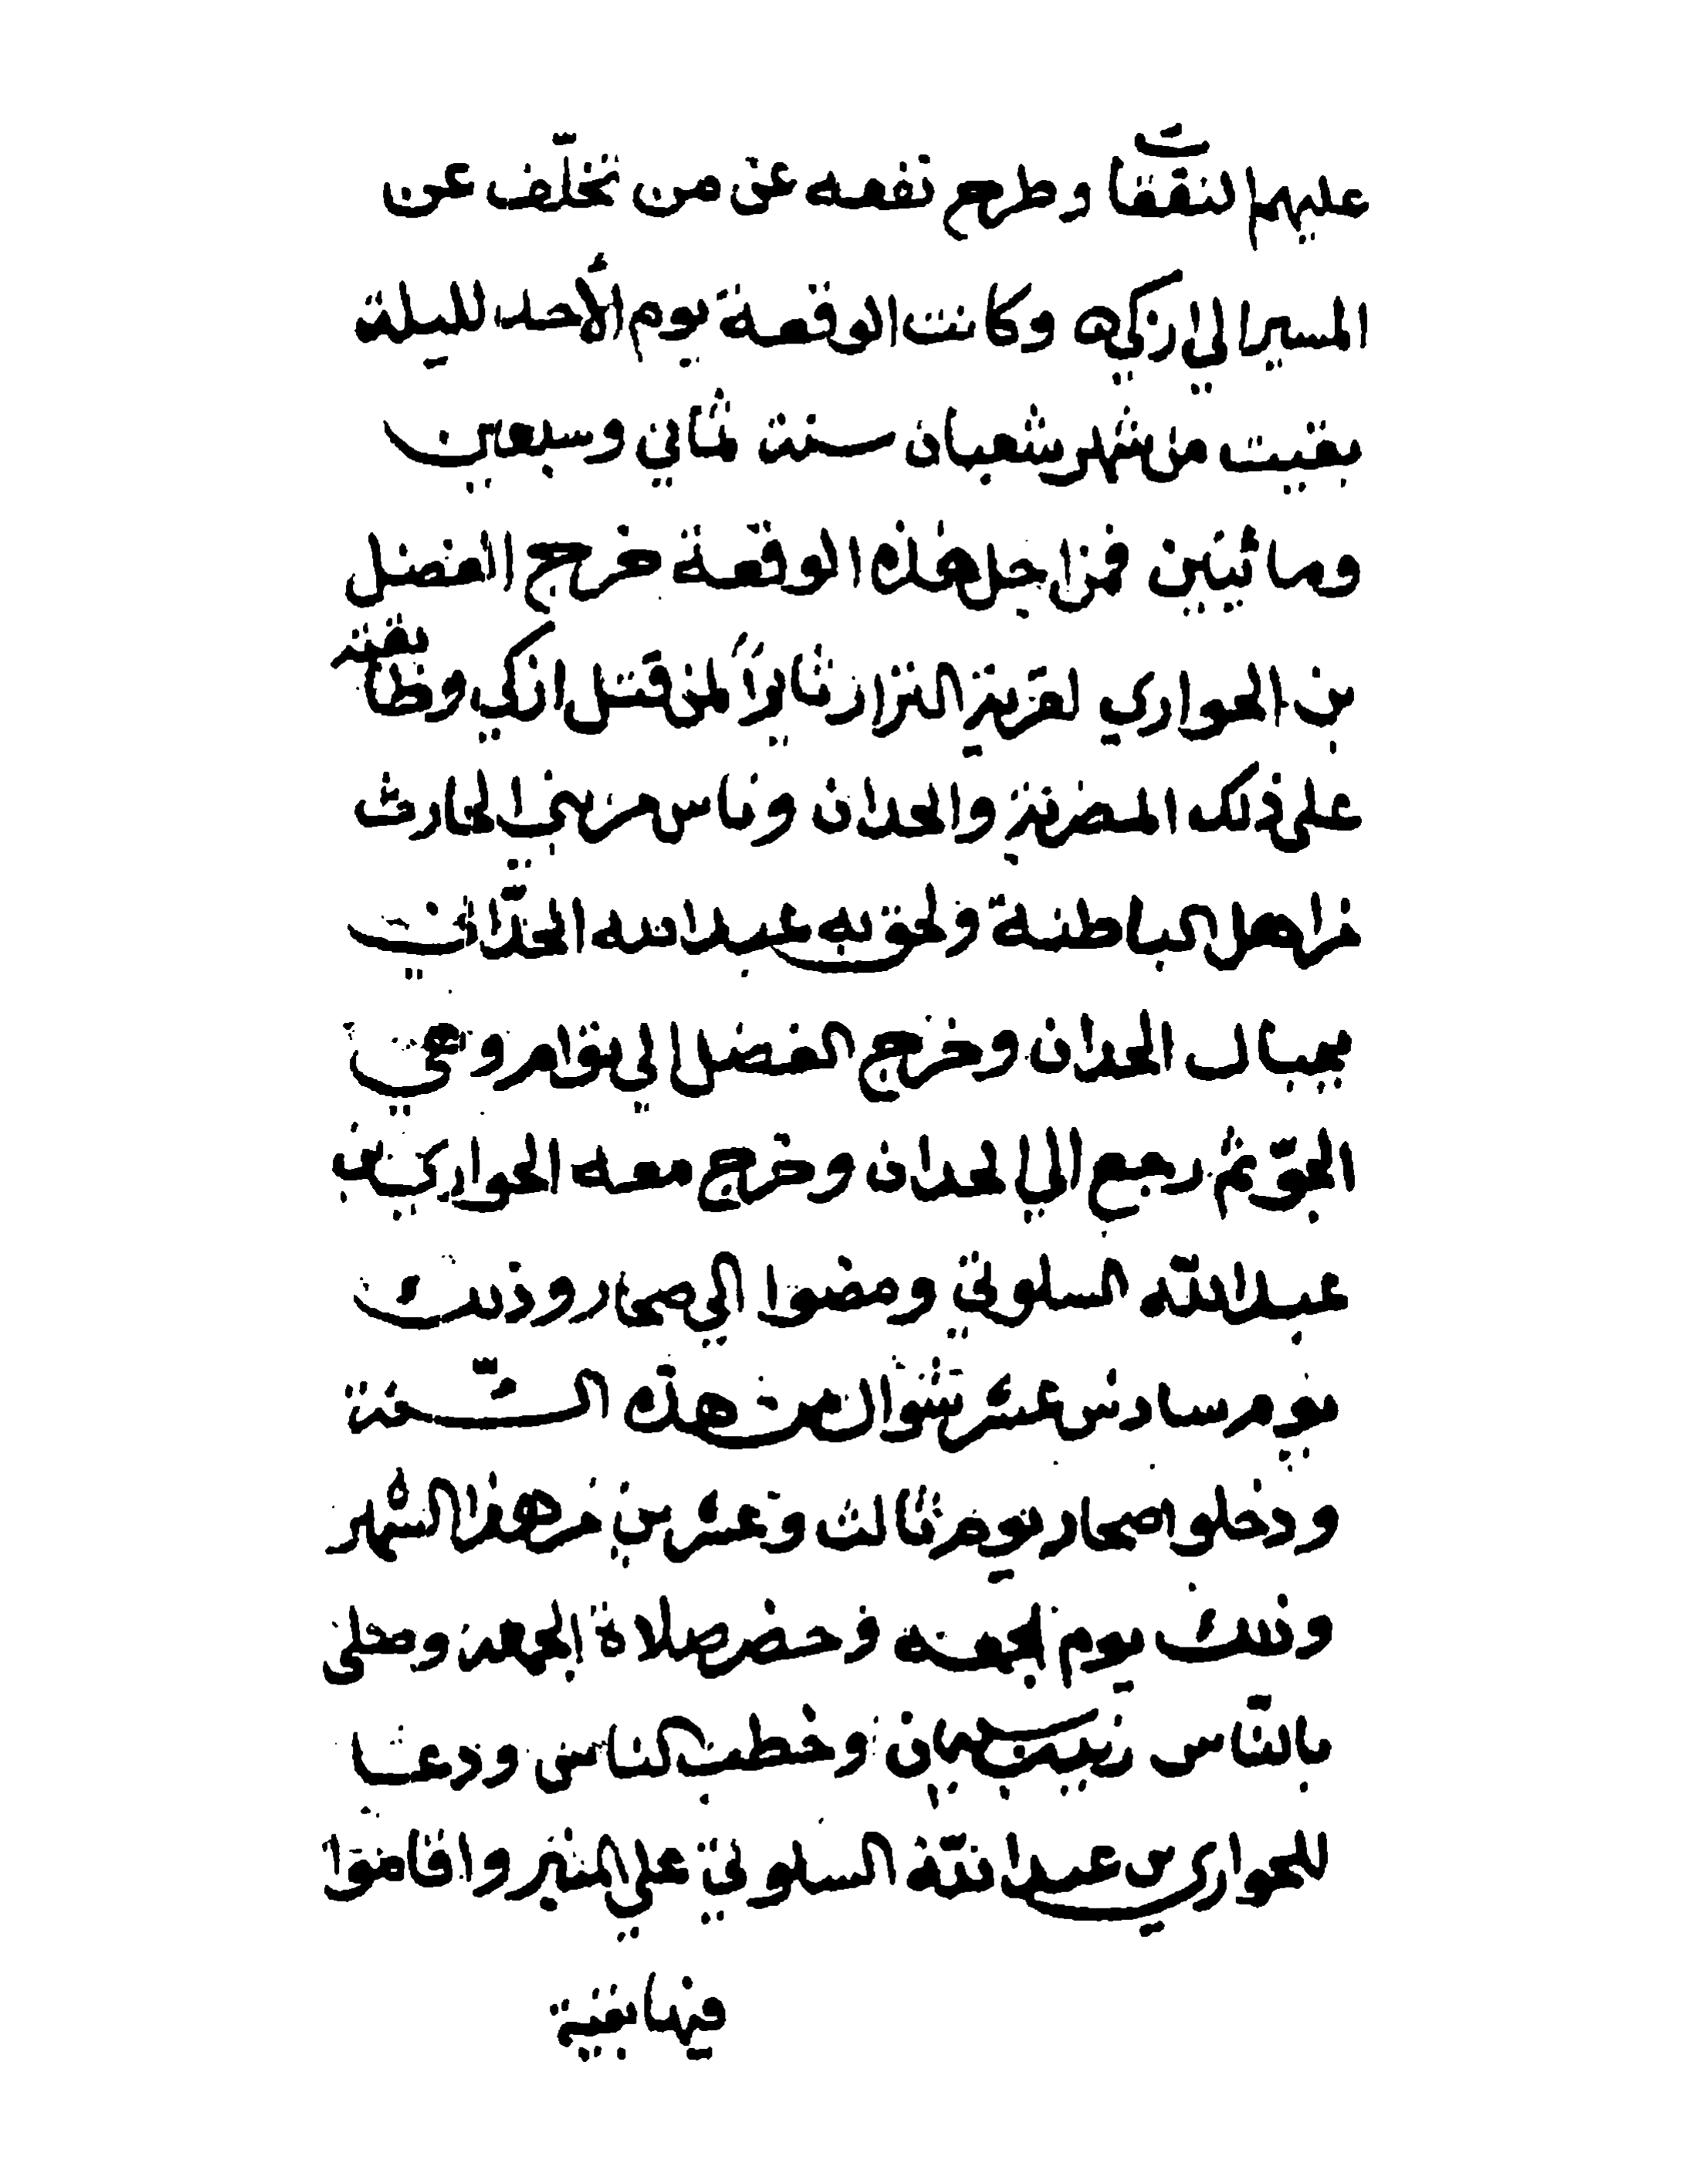 عليهم النفقات وطرح نفعه عن من تخلّف عن
المسير الي ازكي وكانت الوقعة يوم الأحد لليلة
بقيت من شهر شعبان سنة ثماني وسبعين
ومائتين فمن اجل هذه الوقعة خرج الفضل
بن الحواري لقرية النزار ثايراً لمن قتل ازكي وظابقته
على ذلك المضرية والحدان وناس من بني الحارث
من اهل الباطنة ولحق به عبد الله الحدّاني
بجبال الحدان وخرج الفضل الي توام وهي
الجوّ ثم رجع الي الحدان وخرج معه الحواري بن
عبد الله السلوتي ومضوا الي صحار وذلك
يوم سادس عشر شوال من هذه السّنة
ودخلوا صحار يوم ثالث وعشرين من هذا الشهر
وذلك يوم الجمعة فحضر صلاة الجمعة وصلى
بالنّاس زيد بن سليمان وخطب الناس ودعا
للحواري بن عبد الله السلوتي علي المنبر واقاموا
فيها بقية